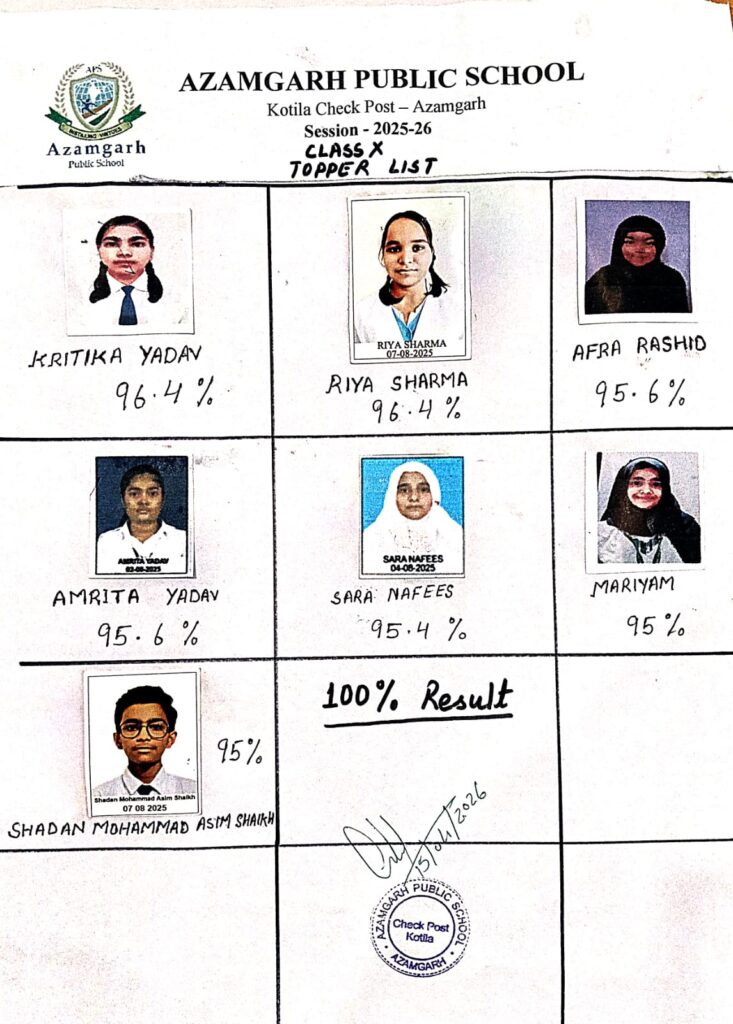 APS
INSTALLING VIRTUES
Azamgarh
Public School
AZAMGARH PUBLIC SCHOOL
Kotila Check Post – Azamgarh
Session - 2025-26
CLASS X
TOPPER LIST
KRITIKA YADAV
96.4 %
RIYA SHARMA
07-08-2025
RIYA SHARMA
96.4 %
AFRA RASHID
95.6 %
AMRITA YADAV
AMRITA YADAV
95.6 %
SARA NAFEES
04-08-2025
SARA NAFEES
95.4 %
MARIYAM
95 %
Shadan Mohammad Asim Shaikh
07 08 2025
95%
SHADAN MOHAMMAD ASIM SHAIKH
100% Result
15/04/2026
AZAMGARH PUBLIC SCHOOL
Check Post
Kotila
AZAMGARH